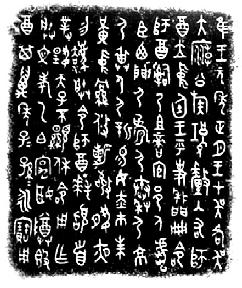 隹王元年正月王才吳各吳
大廟公族釐入右師
酉立中廷王乎史冊命
師酉嗣乃且啻官邑人虎
臣西門尸尸尸京尸
身尸新易女赤市朱黃中
攸勒敬夙夜勿灋朕
令師酉拜稽首
對揚天子不顯休命用乍
朕文考乙白宄姬尊簋
酉其萬年子子孫孫永寶用